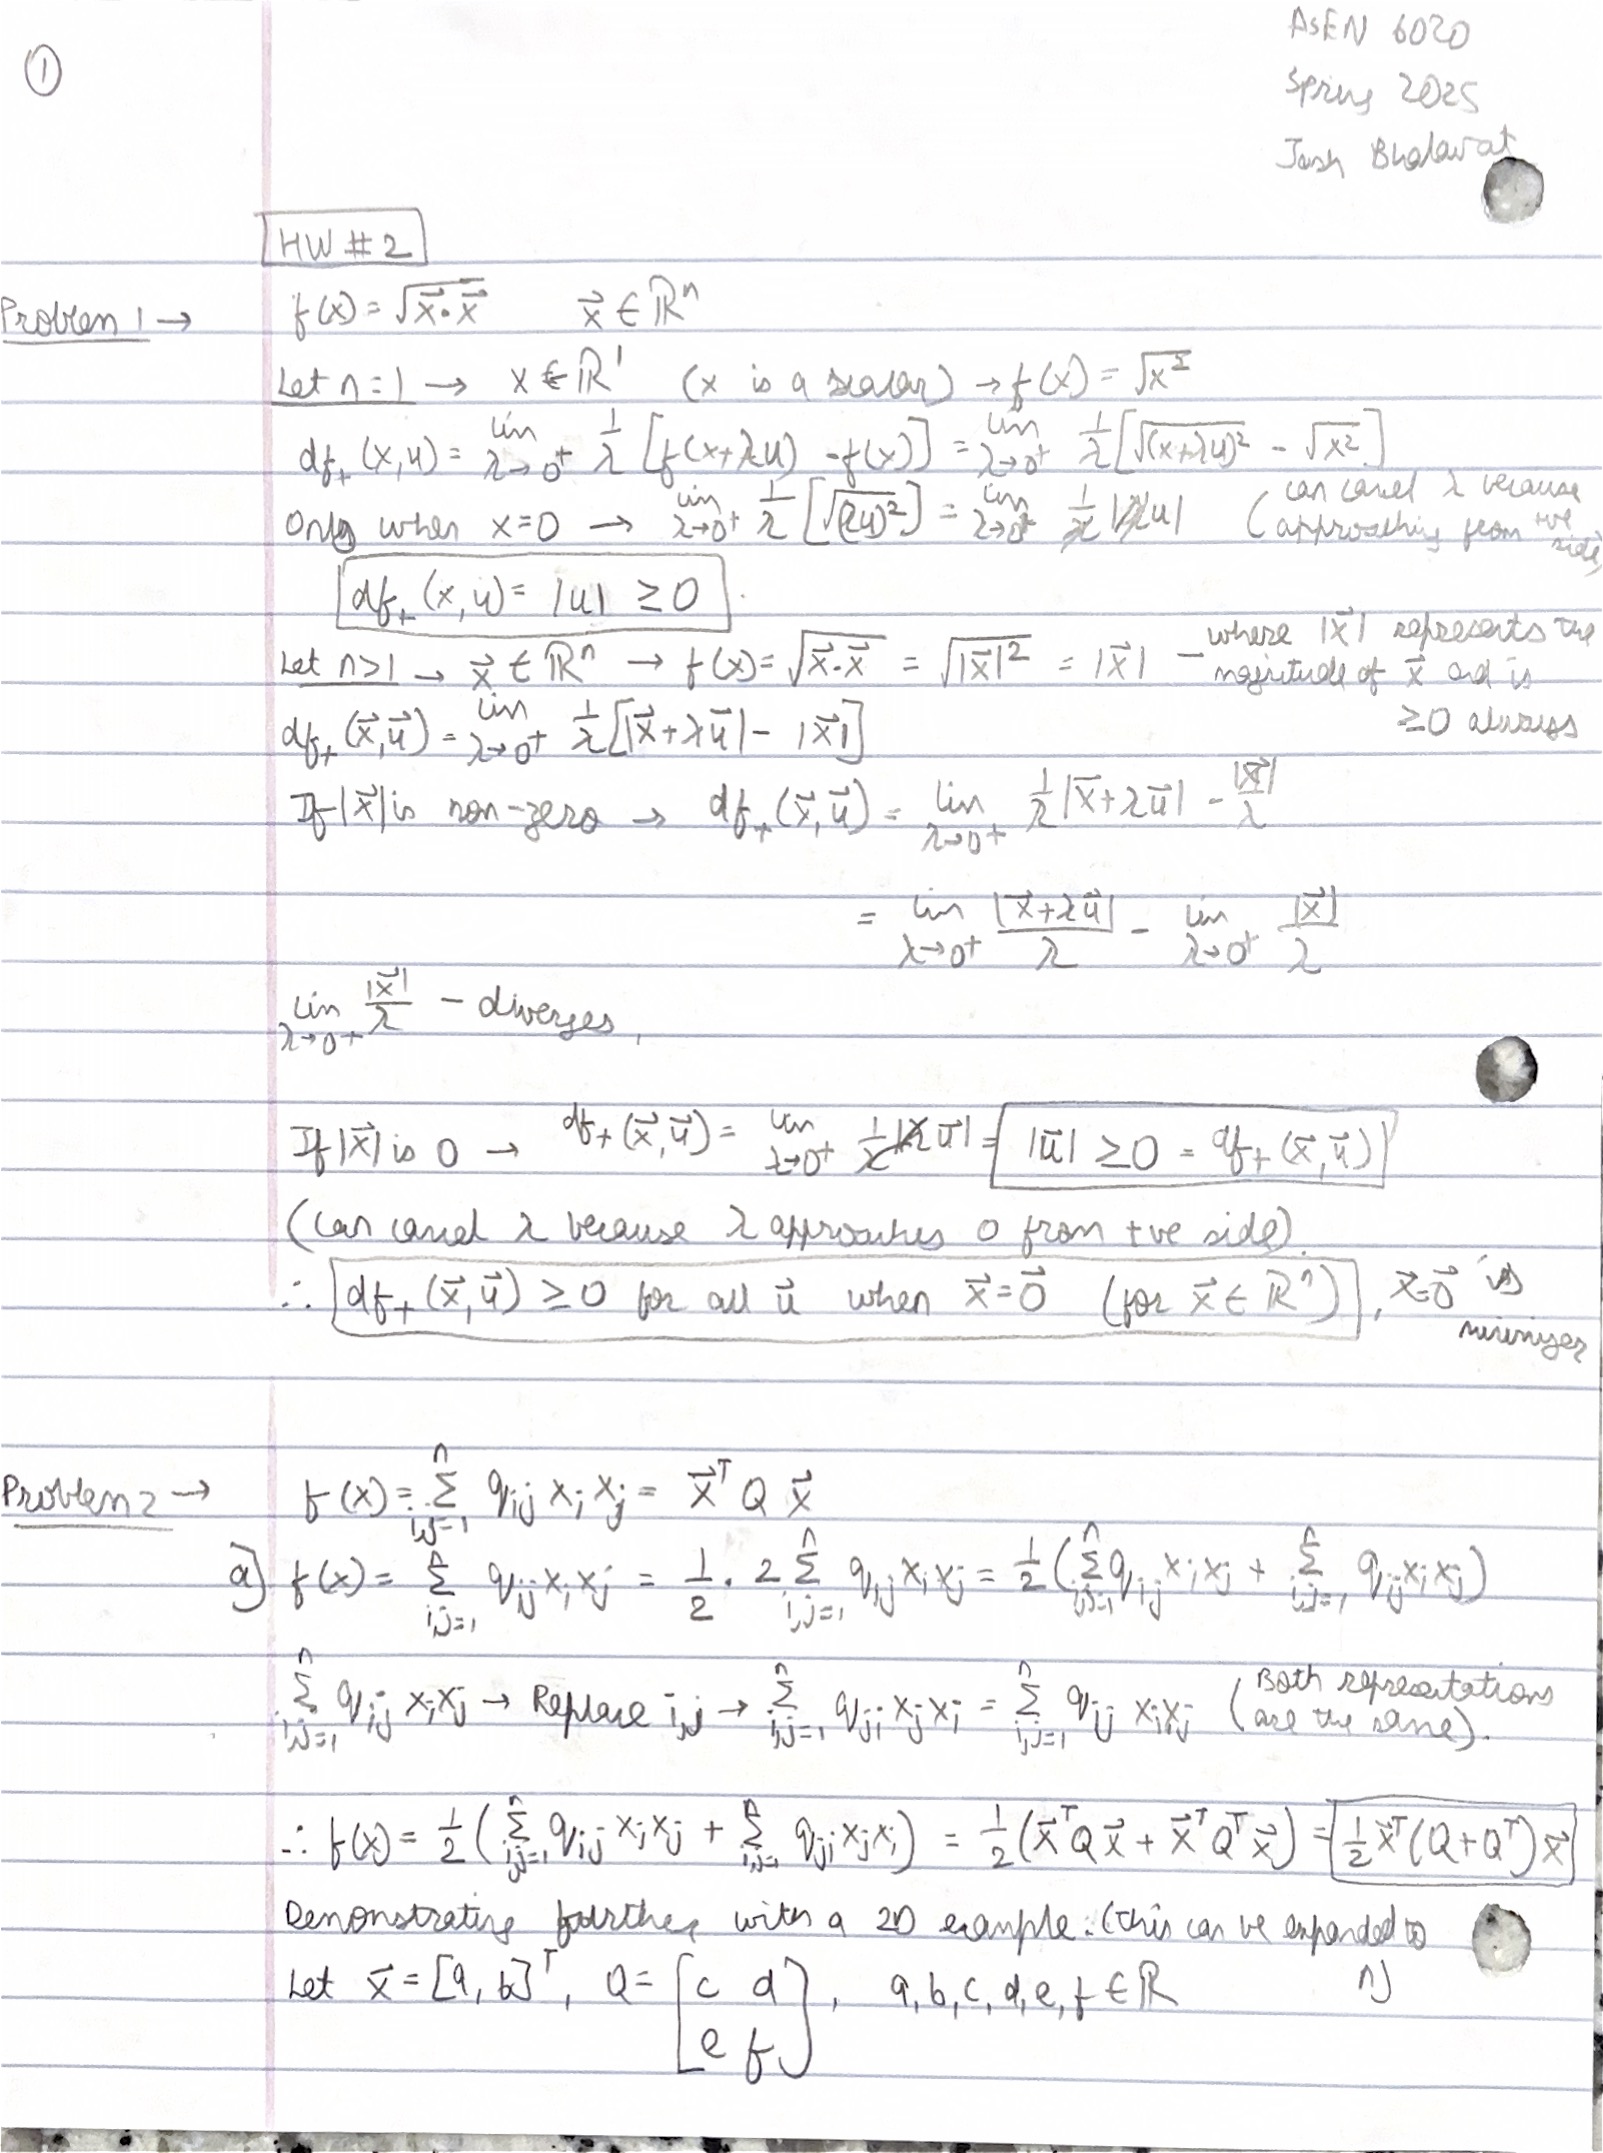 ①
ASEN 6020
Spring 2025
Jash Bhalavat
HW #2
Problem 1 → f(x) = √(x⃗·x⃗)   x⃗ ∈ ℝⁿ
Let n=1 → x ∈ ℝ¹ (x is a scalar) → f(x) = √x²
df₊(x,u) = lim λ→0⁺ 1/λ [f(x+λu) - f(x)] = lim λ→0⁺ 1/λ [√(x+λu)² - √x²]
Only when x=0 → lim λ→0⁺ 1/λ [√(λu)²] = lim λ→0⁺ 1/λ |λu| (can cancel λ because approaching from +ve side)
df₊(x,u) = |u| ≥ 0
Let n>1 → x⃗ ∈ ℝⁿ → f(x) = √(x⃗·x⃗) = √|x⃗|² = |x⃗| - where |x⃗| represents the magnitude of x⃗ and is ≥0 always
df₊(x⃗,u⃗) = lim λ→0⁺ 1/λ [|x⃗+λu⃗| - |x⃗|]
If |x⃗| is non-zero → df₊(x⃗,u⃗) = lim λ→0⁺ 1/λ |x⃗+λu⃗| - |x⃗|/λ
= lim λ→0⁺ |x⃗+λu⃗|/λ - lim λ→0⁺ |x⃗|/λ
lim λ→0⁺ |x⃗|/λ - diverges,
If |x⃗| is 0 → df₊(x⃗,u⃗) = lim λ→0⁺ 1/λ |λu⃗| = |u⃗| ≥ 0 = df₊(x⃗,u⃗)
(can cancel λ because λ approaches 0 from +ve side).
∴ df₊(x⃗,u⃗) ≥ 0 for all u⃗ when x⃗=0⃗ (for x⃗ ∈ ℝⁿ), x⃗=0⃗ is minimizer
Problem 2 → f(x) = Σ_{i,j=1}^n q_ij x_i x_j = x⃗ᵀ Q x⃗
a) f(x) = Σ_{i,j=1}^n q_ij x_i x_j = 1/2 · 2 Σ_{i,j=1}^n q_ij x_i x_j = 1/2 (Σ_{i,j=1}^n q_ij x_i x_j + Σ_{i,j=1}^n q_ij x_i x_j)
Σ_{i,j=1}^n q_ij x_i x_j → Replace i,j → Σ_{i,j=1}^n q_ji x_j x_i = Σ_{i,j=1}^n q_ij x_i x_j (Both representations are the same).
∴ f(x) = 1/2 (Σ_{i,j=1}^n q_ij x_i x_j + Σ_{i,j=1}^n q_ji x_j x_i) = 1/2 (x⃗ᵀQx⃗ + x⃗ᵀQᵀx⃗) = 1/2 x⃗ᵀ(Q+Qᵀ)x⃗
Demonstrating further with a 2D example: (this can be expanded to n)
Let x⃗ = [a, b]ᵀ, Q = [c d; e f], a,b,c,d,e,f ∈ ℝ